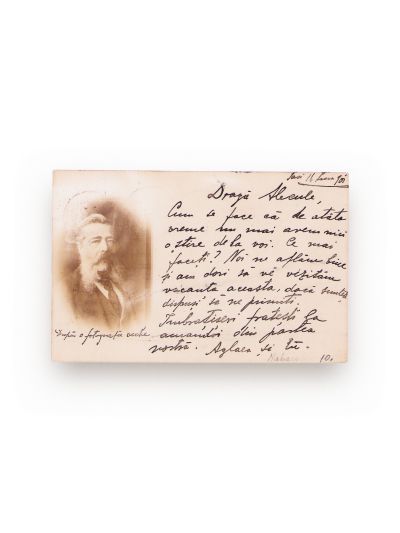 Iasi 11 901
Dragă Alecule,
Cum se face că de atâta
vreme nu mai avem nici
o știre de la voi. Ce mai
faceti? Noi ne aflăm bine
și am dori să vă vizităm
vacanta aceasta, dacă sunteti
dispusi să ne primiti.
Îmbratiseri frătesti la
amândoi din partea
vostră. Aglaea și
După o fotografie veche.
10.